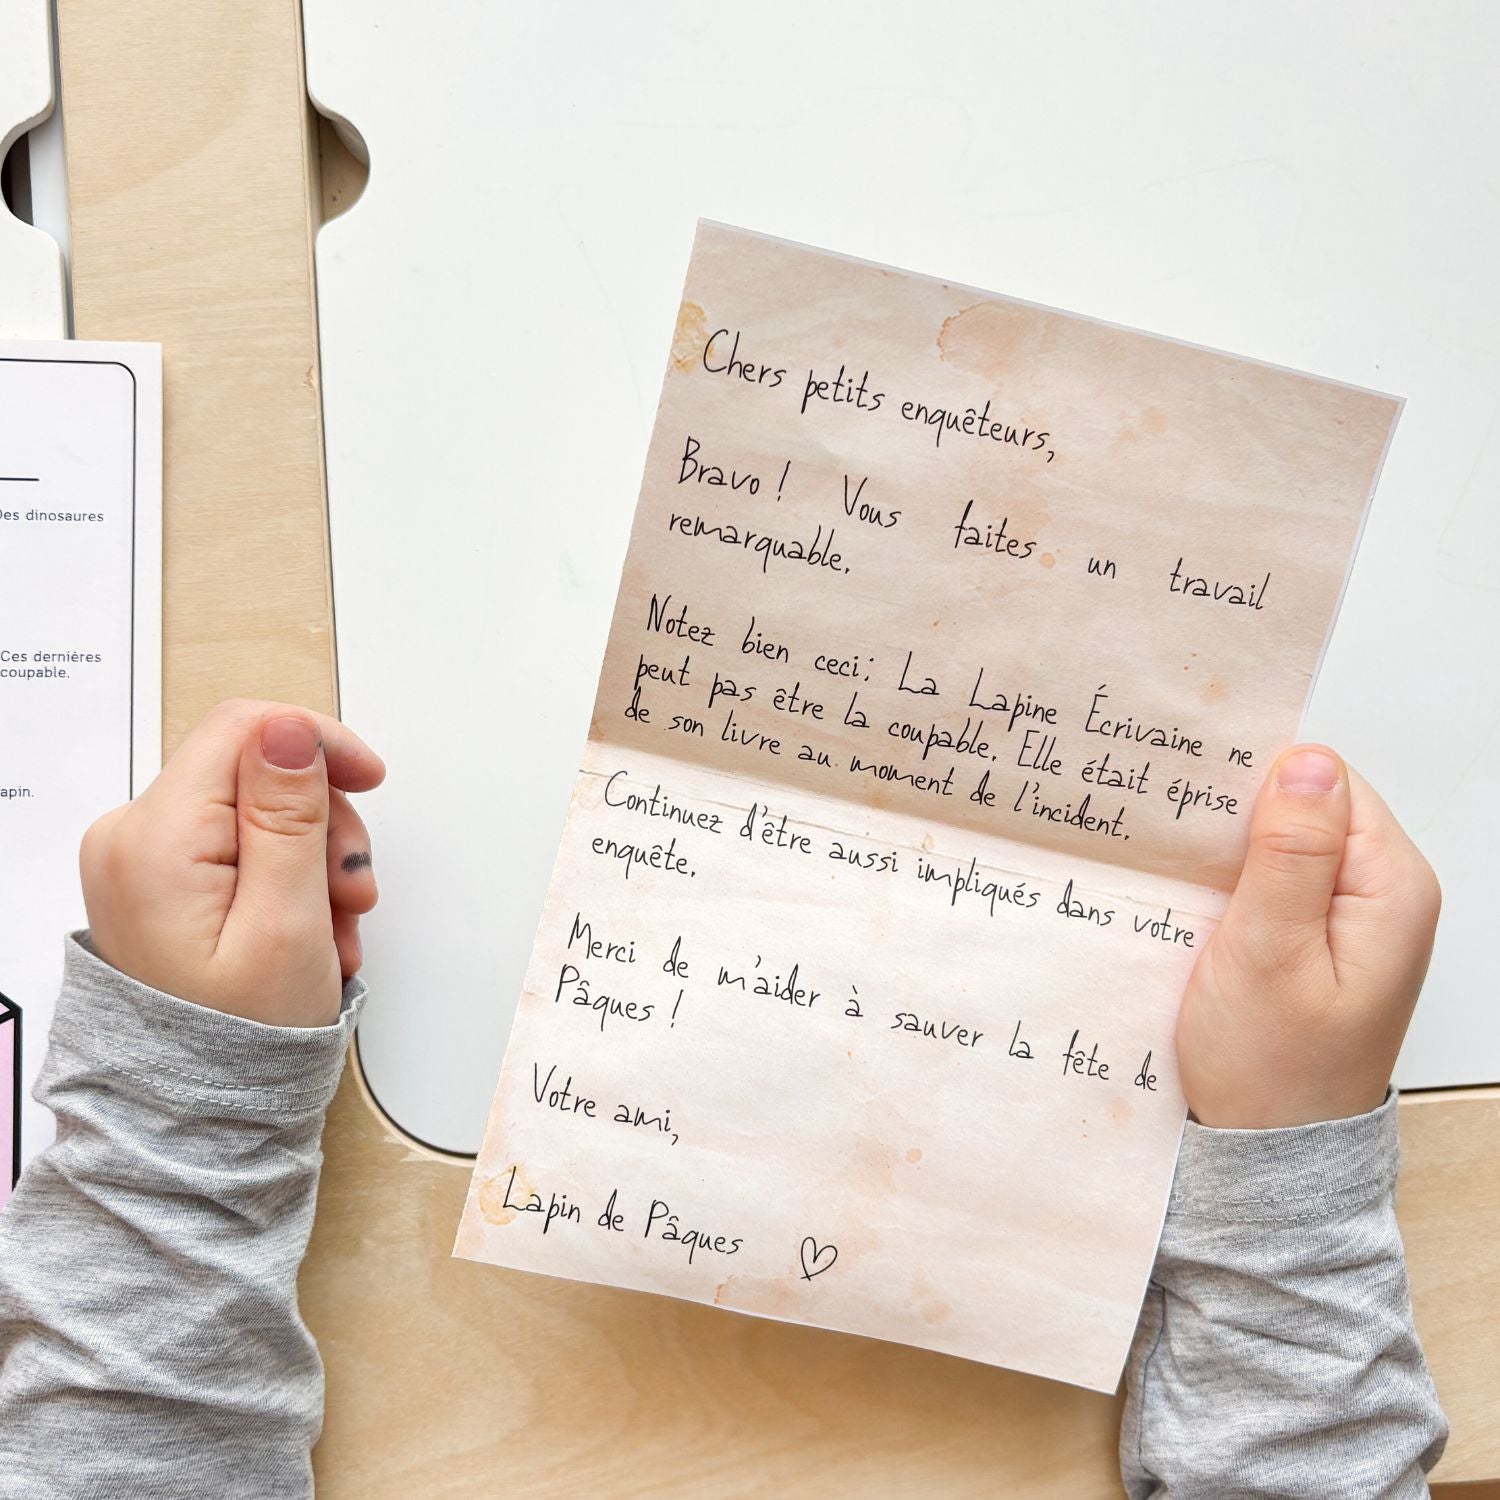 Des dinosaures
Ces dernières
coupable.
apin.
Chers petits enquêteurs,
Bravo ! Vous faites un travail
remarquable.
Notez bien ceci: La Lapine Écrivaine ne
peut pas être la coupable. Elle était éprise
de son livre au moment de l'incident.
Continuez d'être aussi impliqués dans votre
enquête.
Merci de m'aider à sauver la fête de
Pâques !
Votre ami,
Lapin de Pâques